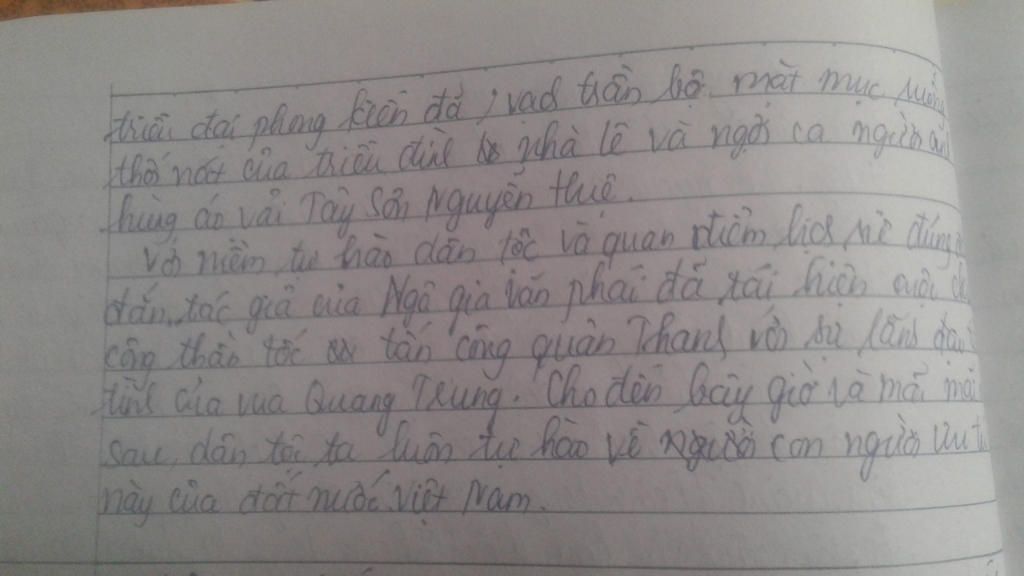 triều đại phong kiến đã, vach trần bộ mặt mục ruỗng
thối nát của triều đình nhà lê và ngợi ca người anh
hùng áo vải Tây Sơn Nguyễn Huệ.
Với niềm tự hào dân tộc và quan điểm lịch sử đúng
đắn, tác giả của Ngô gia văn phái đã tái hiện cuộc
công thần tốc tấn công quân Thanh với sự lãnh đạo
tình của vua Quang Trung. Cho đến bây giờ và mãi mãi
sau, dân tộc ta luôn tự hào về người con người ưu tú
này của đất nước Việt Nam.